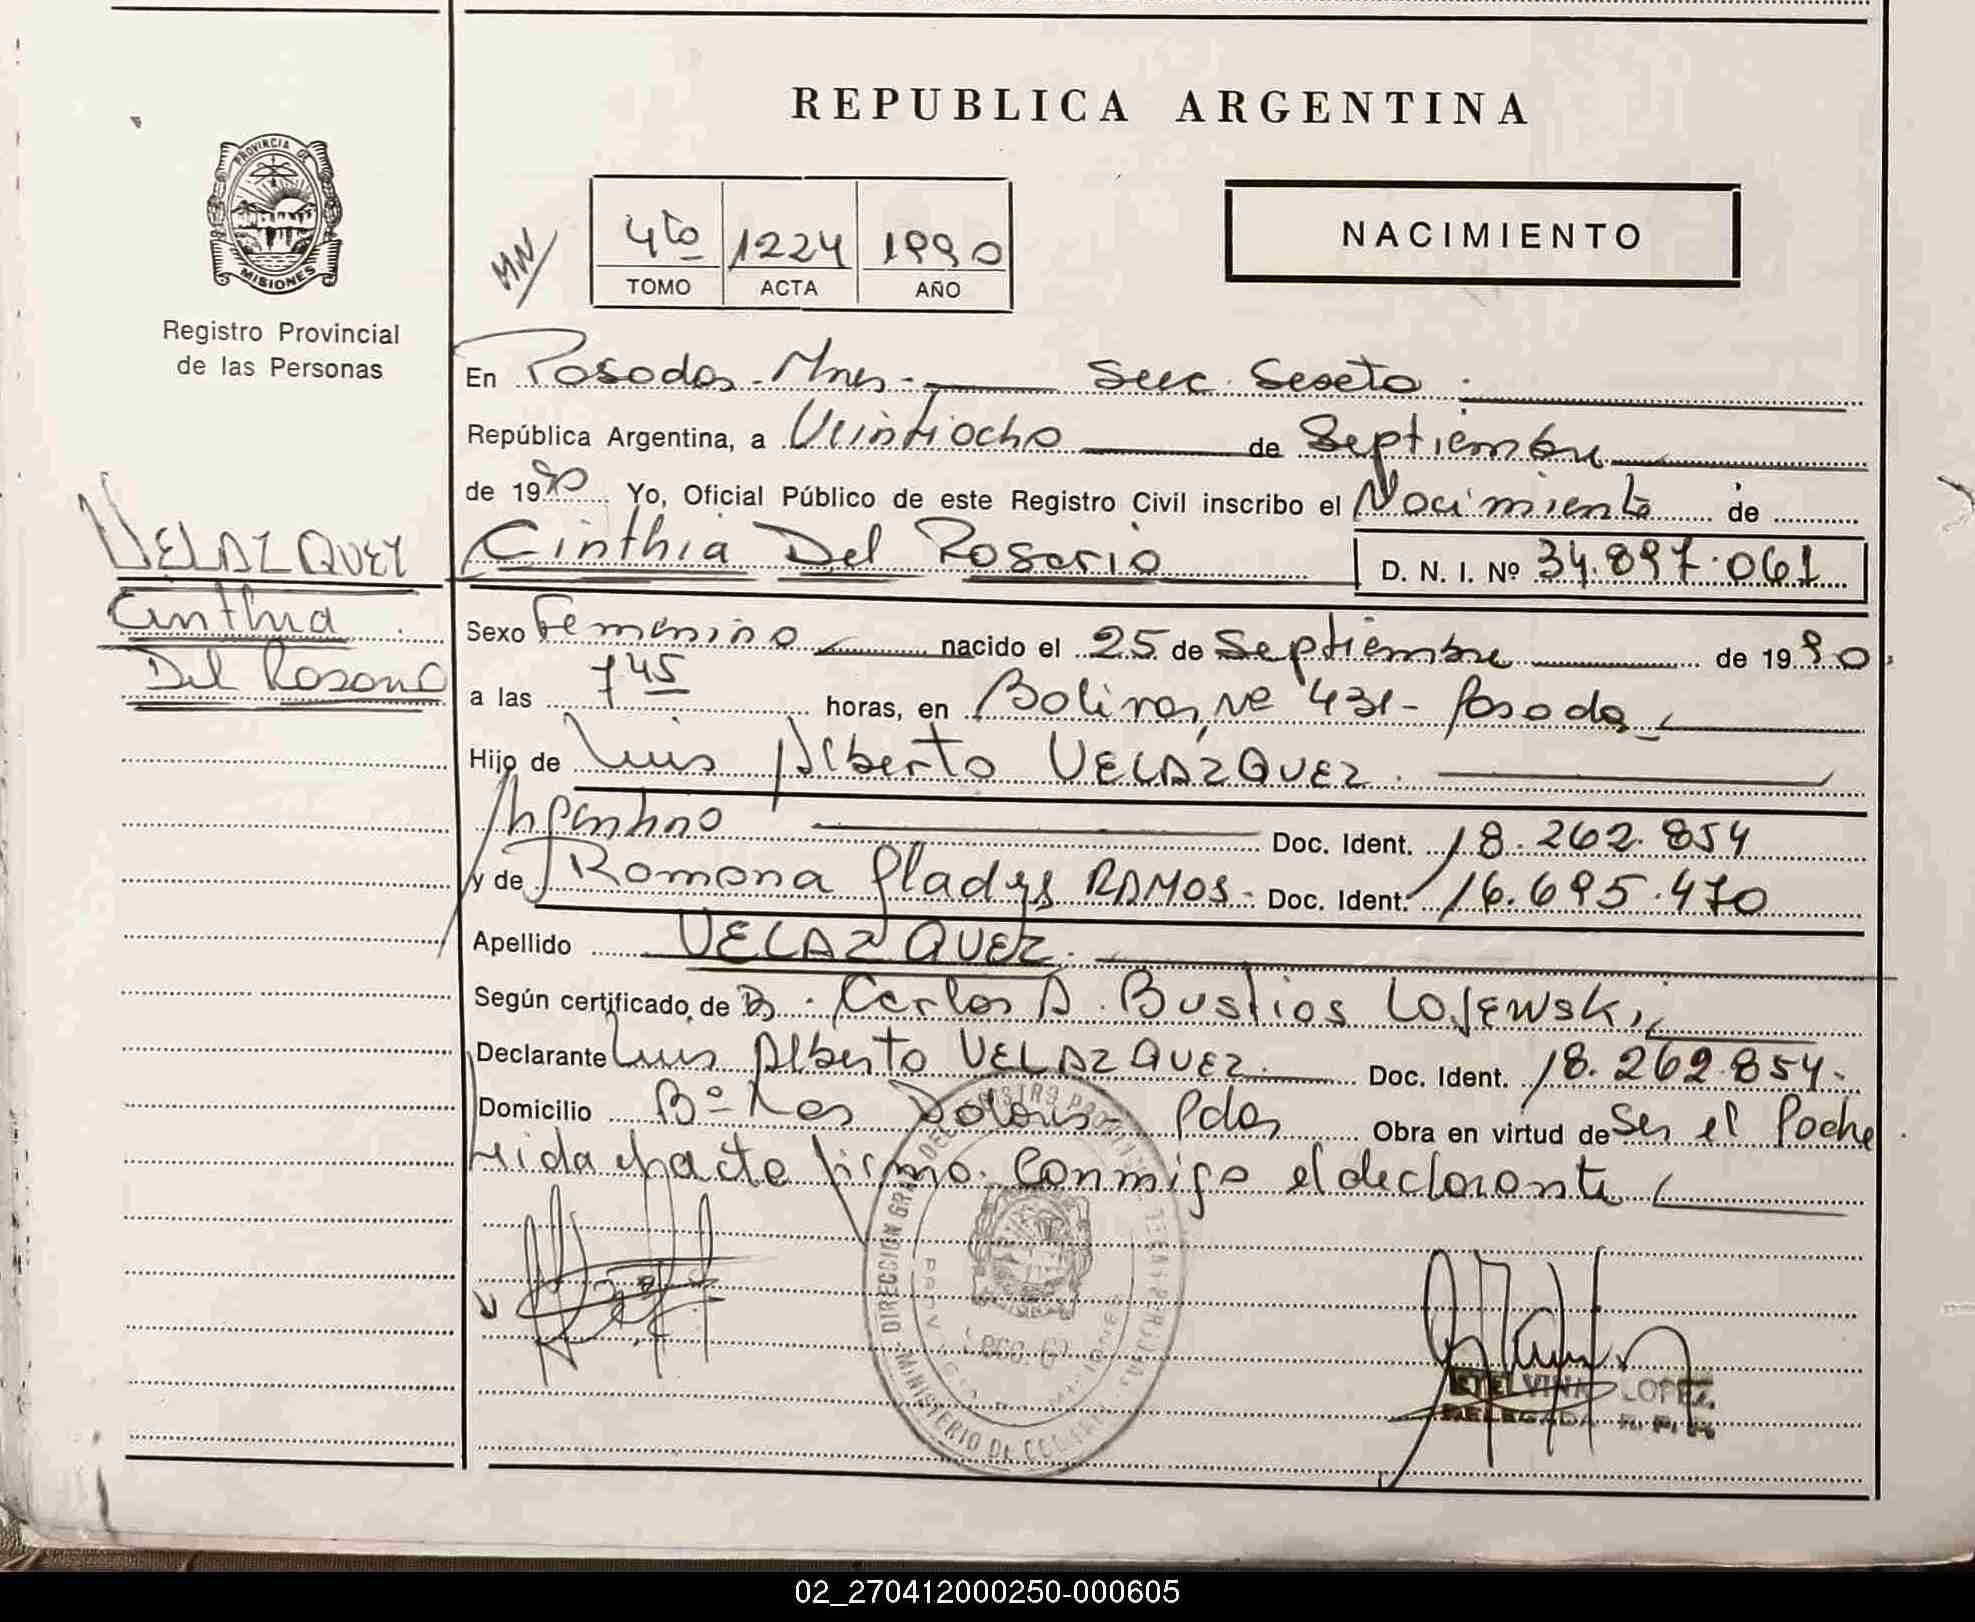 REPUBLICA ARGENTINA
PROVINCIA DE
MISIONES
Registro Provincial
de las Personas
NACIMIENTO
MN
4to 1224 1990
TOMO ACTA AÑO
En Posadas - Mnes. - Secc. Sexta.
República Argentina, a Veintiocho de Septiembre
de 1990 Yo, Oficial Público de este Registro Civil inscribo el Nacimiento de
VELAZQUEZ
Cinthia
Del Rosario
Cinthia Del Rosario D. N. I. Nº 34.897.061
Sexo Femenino nacido el 25 de Septiembre de 1990
a las 7 45 horas, en Bolivar Nº 431 - Posadas
Hijo de Luis Alberto VELAZQUEZ.
Argentino Doc. Ident. 18.262.854
y de Ramona Gladys RAMOS - Doc. Ident. 16.695.470
Apellido VELAZQUEZ.
Según certificado de Dr. Carlos A. Bustios Lojewski
Declarante Luis Alberto VELAZQUEZ. Doc. Ident. 18.262.854.
Domicilio Bº Los Dolores - Pdas Obra en virtud de Ser el Padre
Leida el acta firma conmigo el declarante
DIRECCION GRAL DEL REGISTRO
MINISTERIO DE
ETELVINA LOPEZ
DELEGADA R. P. P.
02_270412000250-000605